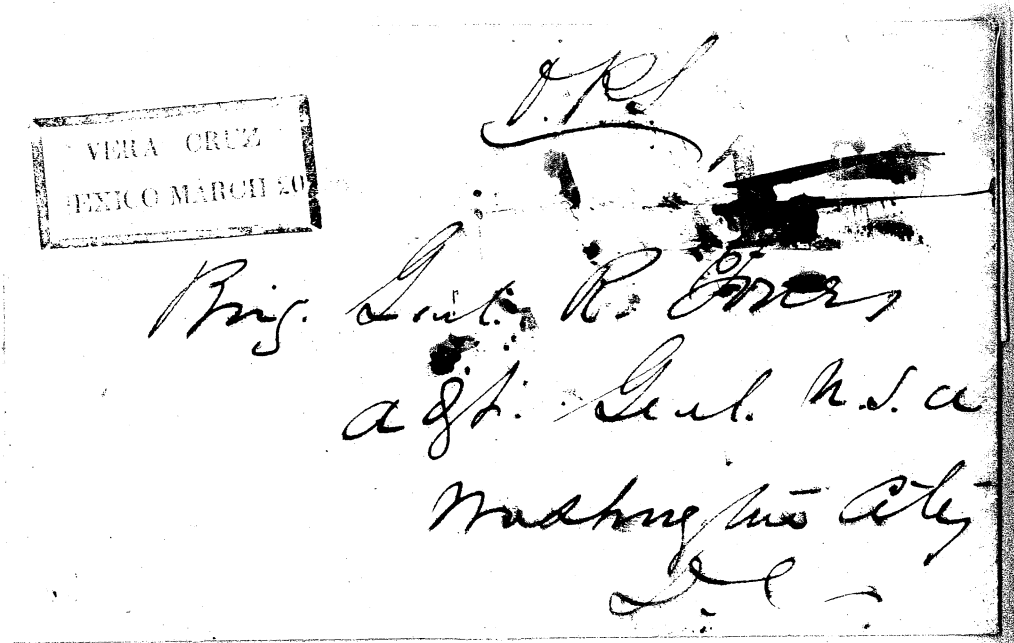 VERA CRUZ
MEXICO MARCH 20
Brig. Genl. R. Jones,
Adjt. Genl. U.S.A
Washington City
D.C.